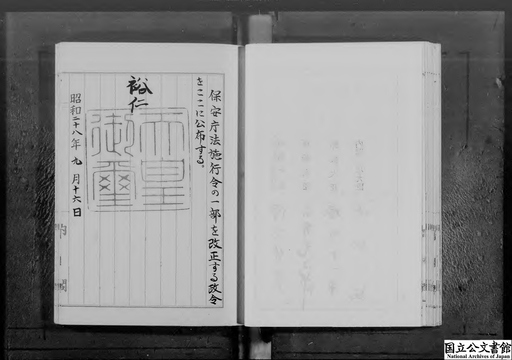 保安庁法施行令の一部を改正する政令
をここに公布する。
裕仁
天皇
御璽
昭和二十八年九月十六日
国立公文書館
National Archives of Japan